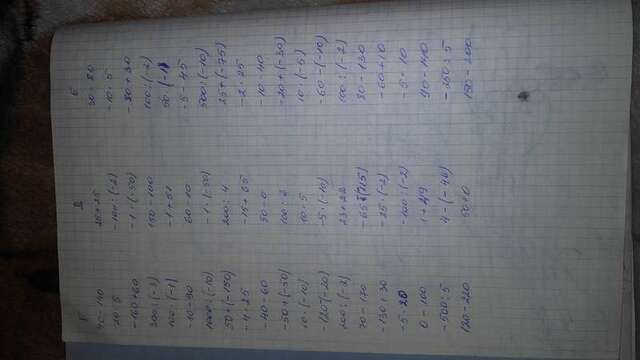 Г В Б
40 - 140 25 + 25
-20 · 5 -100 : (-2) -10 · 5
-160 + 60 -1 · (-50) -80 + 30
150 - 100 100 : (-2)
100 · (-1) -1 + 51
-10 - 90 60 - 10 -5 - 45
1000 : (-10) -1 · (-50) 500 : (-10)
50 + (-150) 200 : 4 25 + (-75)
-4 · 25 -15 + 65 -2 · 25
-40 - 60 50 - 0 -10 - 40
-50 + (-50) 100 : 2 -20 + (-30)
10 · (-10) 10 · 5 10 · (-5)
-120 - (-20) -5 · (-10) -60 - (-10)
200 : (-2) 100 : (-2)
80 - 130
-130 + 30 -25 · (-2) -60 + 10
-5 · 20 -100 : (-2) -5 · 10
0 - 100 1 + 49 90 - 140
-500 : 5 4 - (-46) -250 : 5
120 - 220 50 + 0 150 - 200